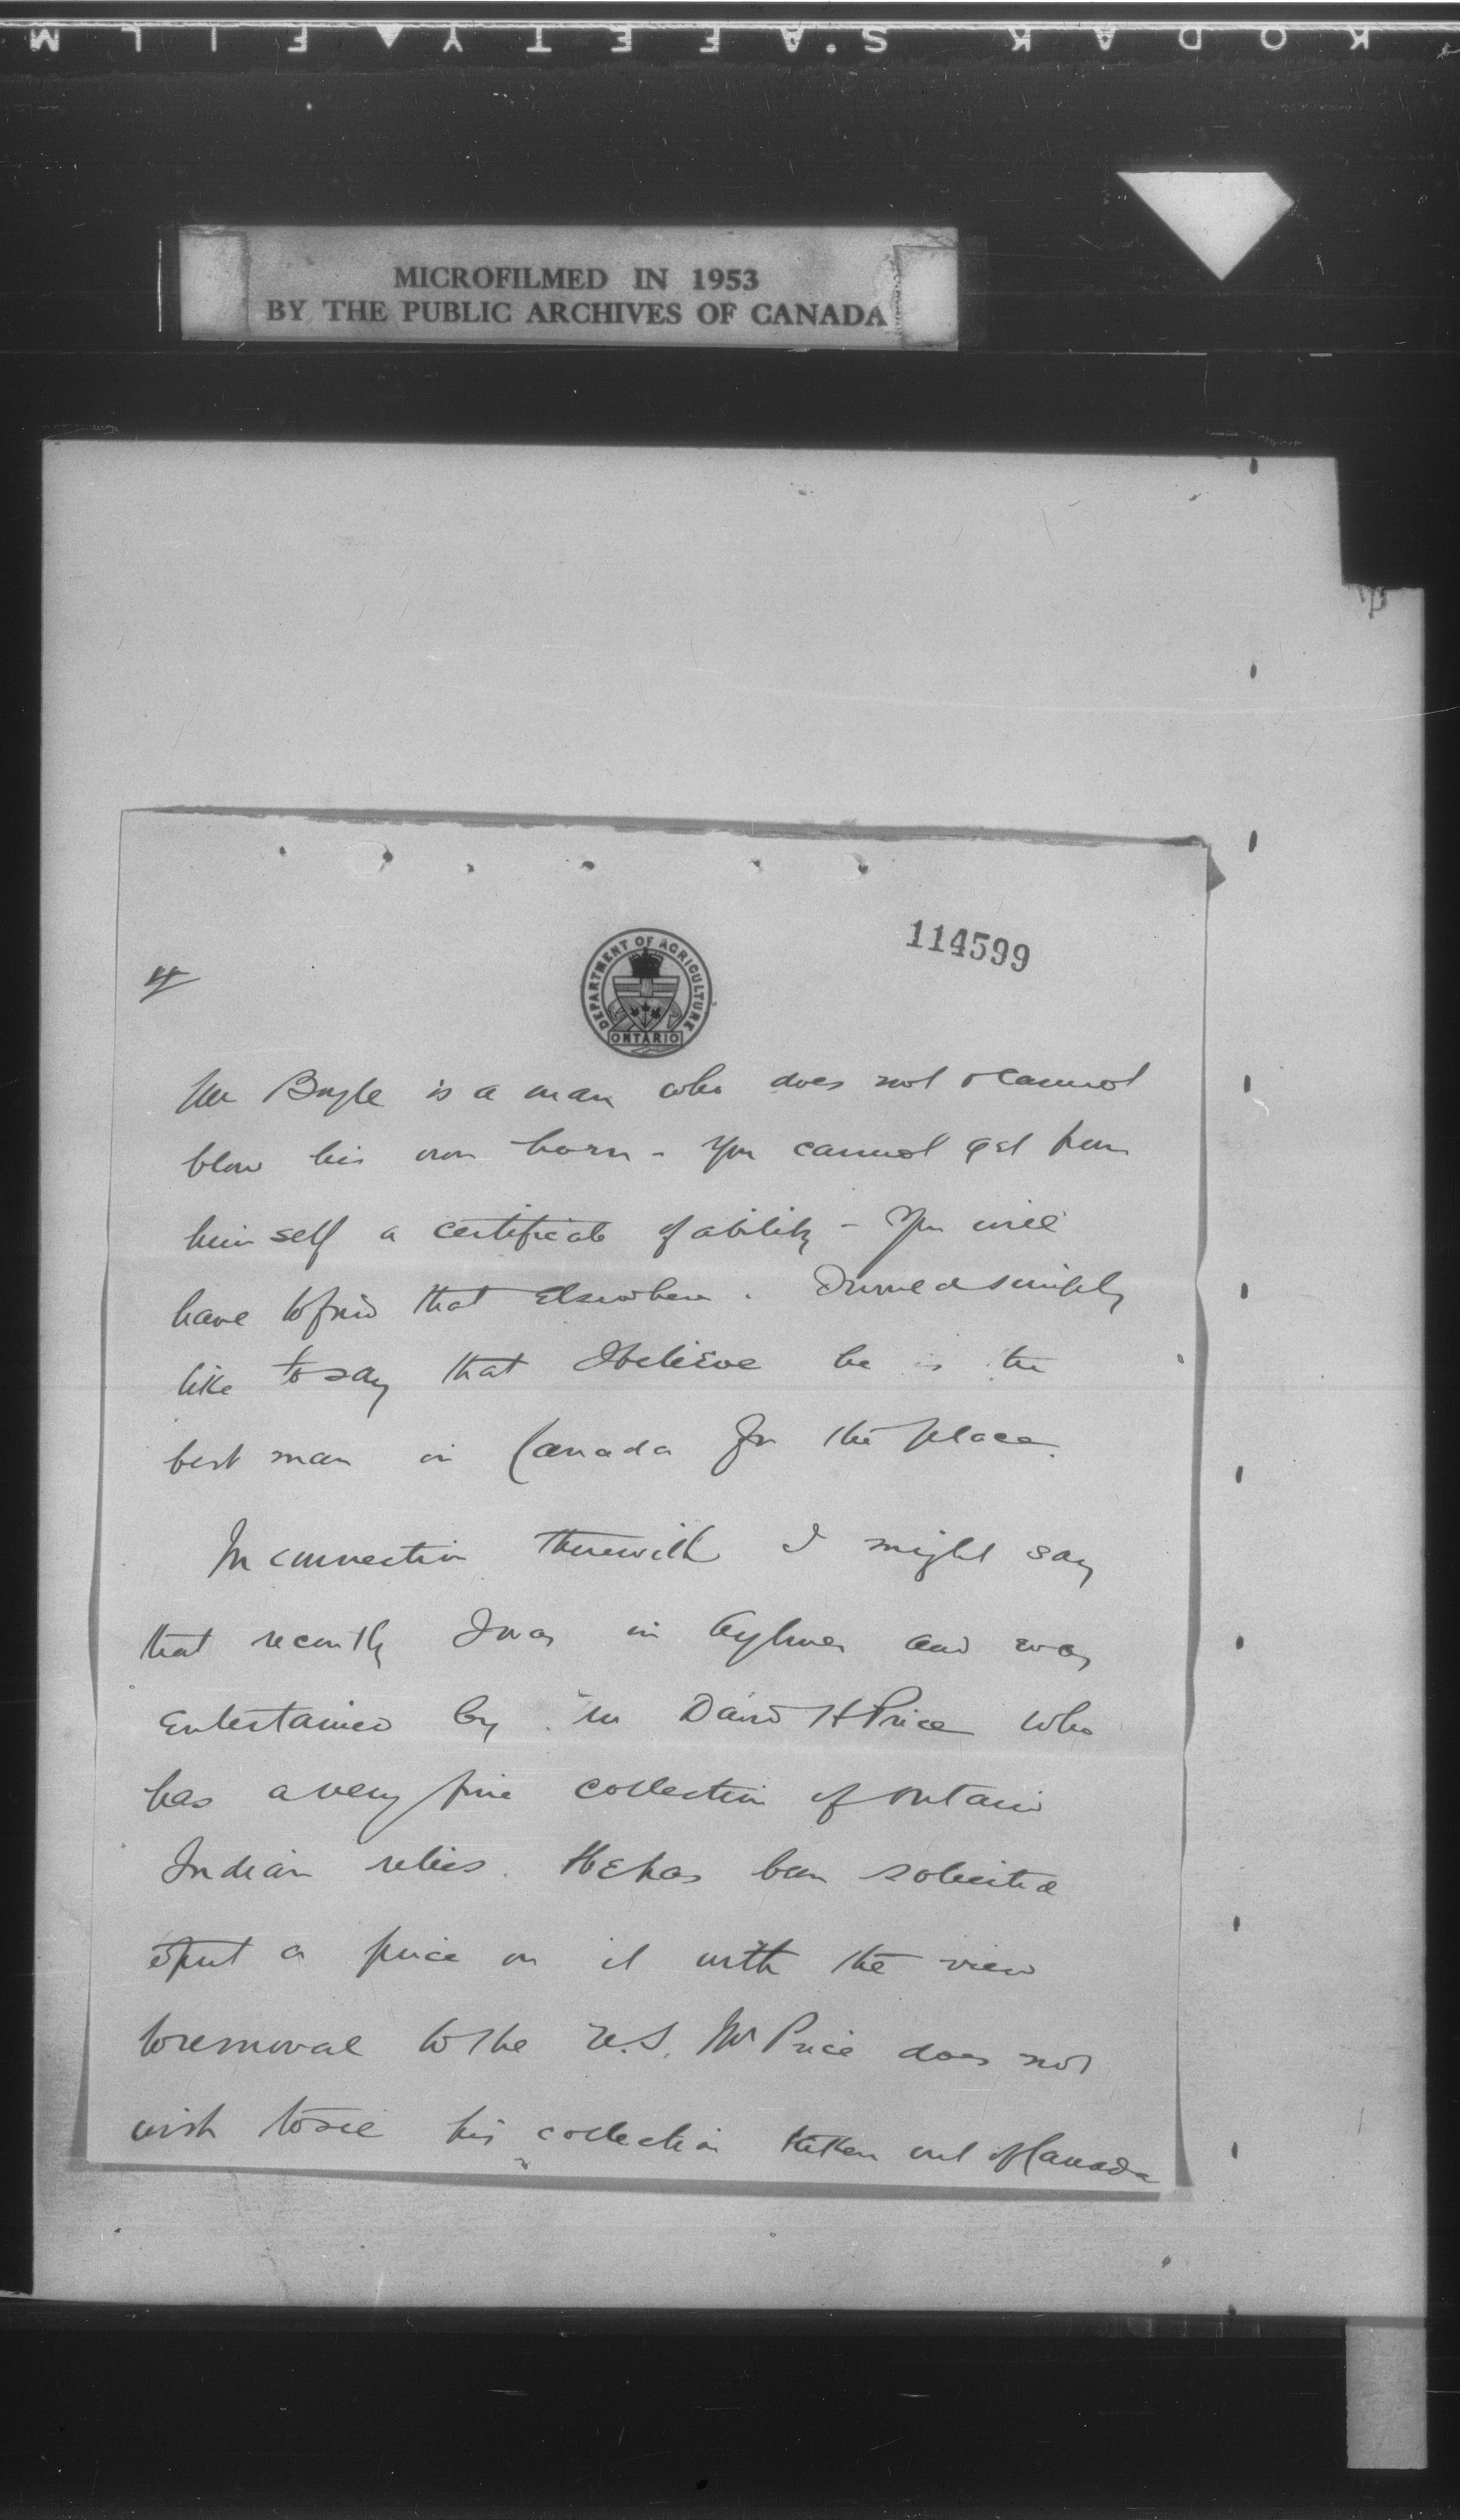 KODAK SAFETY FILM
MICROFILMED IN 1953
BY THE PUBLIC ARCHIVES OF CANADA
114599
4
DEPARTMENT OF AGRICULTURE
ONTARIO
Mr Boyle is a man who does not & cannot
blow his own horn - You cannot get from
himself a certificate of ability - You will
have to find that elsewhere. I would simply
like to say that I believe he is the
best man in Canada for the place.
In connection therewith I might say
that recently I was in Aylmer and was
entertained by Mr David H Price who
has a very fine collection of Ontario
Indian relics. He has been solicited
to put a price on it with the view
to removal to the U.S. Mr Price does not
wish to see his collection taken out of Canada